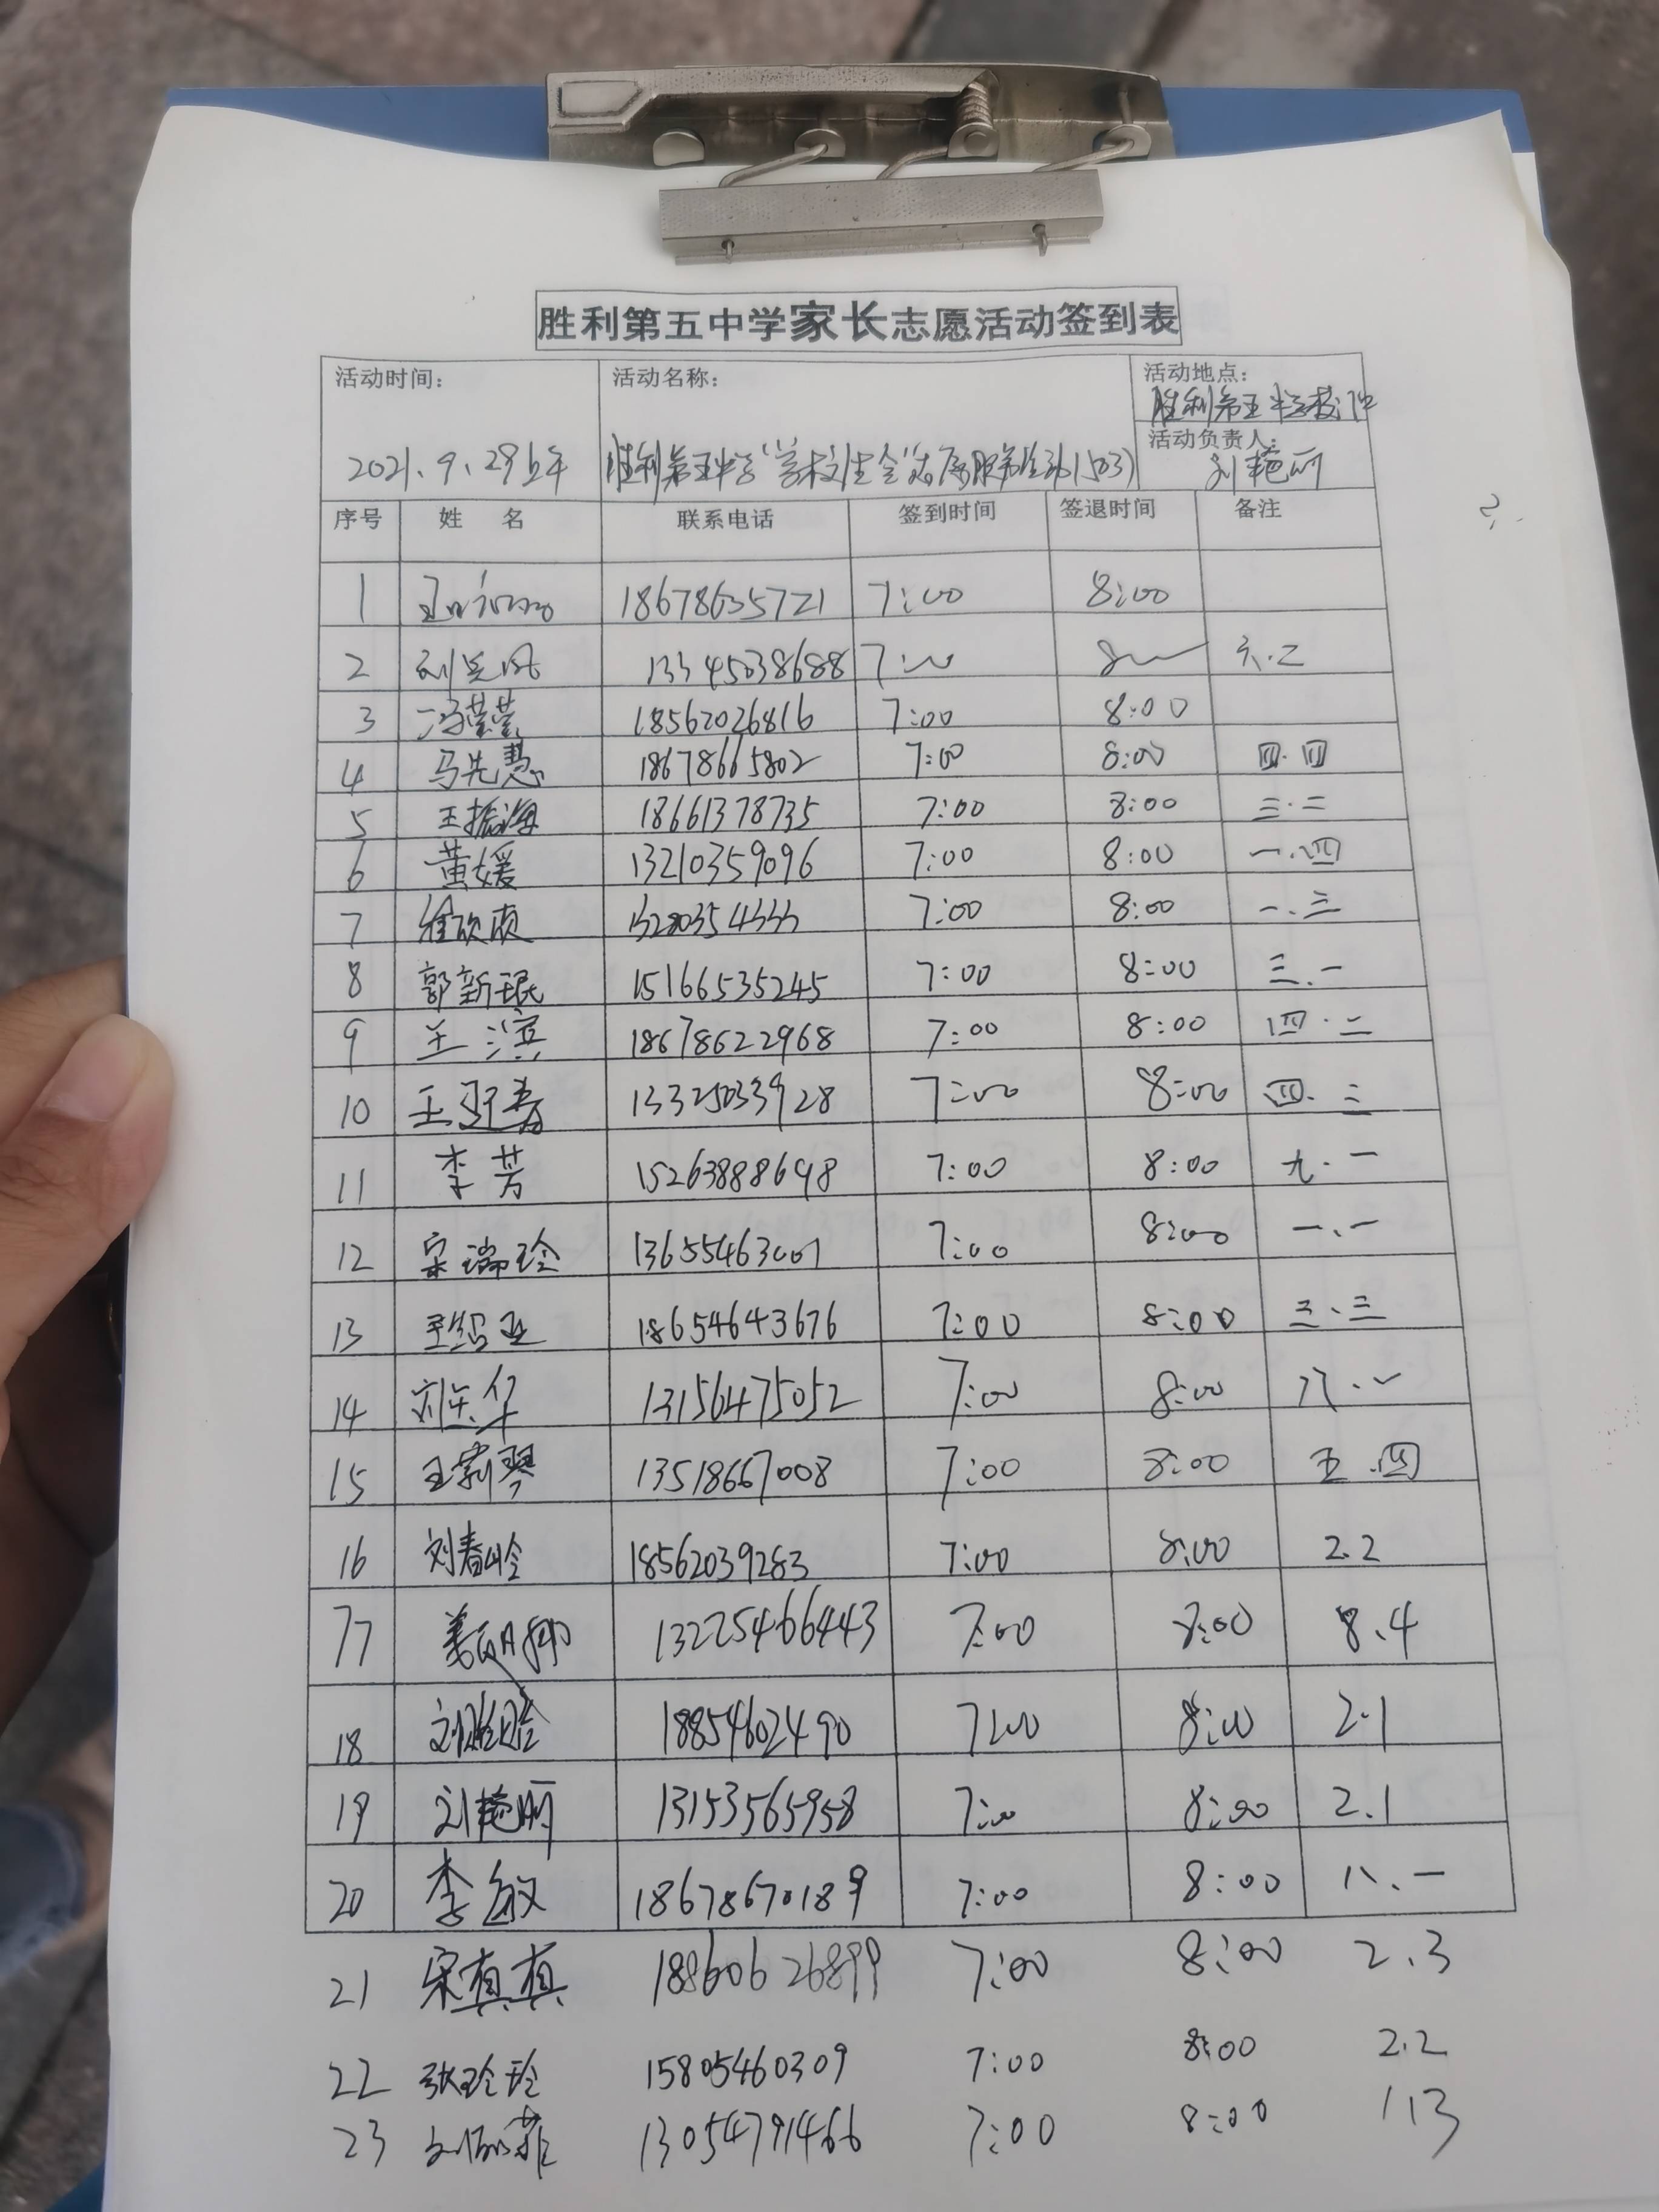 胜利第五中学家长志愿活动签到表
活动时间： 活动名称： 活动地点：
胜利第五中学校门口
活动负责人：
2021.9.29上午 胜利第五中学“学校文生会”志愿服务活动(503) 刘艳丽
序号 姓 名 联系电话 签到时间 签退时间 备注
1 18678635721 7:00 8:00
2 13345038688 7:00 8 六.二
3 冯莹莹 18562026816 7:00 8:00
4 马先慧 18678665802 7:00 8:00 四.四
5 王振海 18661378735 7:00 8:00 三.二
6 黄媛 13210359096 7:00 8:00 一.四
7 13280354333 7:00 8:00 一.三
8 郭新珉 15166535245 7:00 8:00 三.一
9 王滨 18678622968 7:00 8:00 四.二
10 王亚春 13325033928 7:00 8:00 四.三
11 李芳 15263888698 7:00 8:00 九.一
12 宋瑞玲 13655463001 7:00 8:00 一.一
13 18654643676 7:00 8:00 三.三
14 13156475052 7:00 8:00 六.一
15 王翠琴 13518667008 7:00 8:00 五.四
16 刘春岭 18562039283 7:00 8:00 2.2
17 13225466443 7:00 8:00 8.4
18 18854602490 7:00 8:00 2.1
19 刘艳丽 13153565958 7:00 8:00 2.1
20 李敏 18678670189 7:00 8:00 八.一
21 宋真真 18860626899 7:00 8:00 2.3
22 张玲玲 15805460309 7:00 8:00 2.2
23 13054791466 7:00 8:00 113